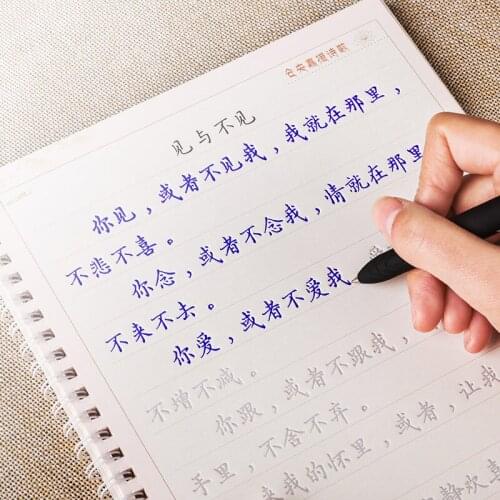 仓央嘉措诗歌
见与不见
你见，或者不见我，我就在那里，
不悲不喜。
你念，或者不念我，情就在那里
不来不去。
你爱，或者不爱我
不增不减。
你跟，或者不跟我，
手里，不舍不弃。
来我的怀里，或者，让我
欢